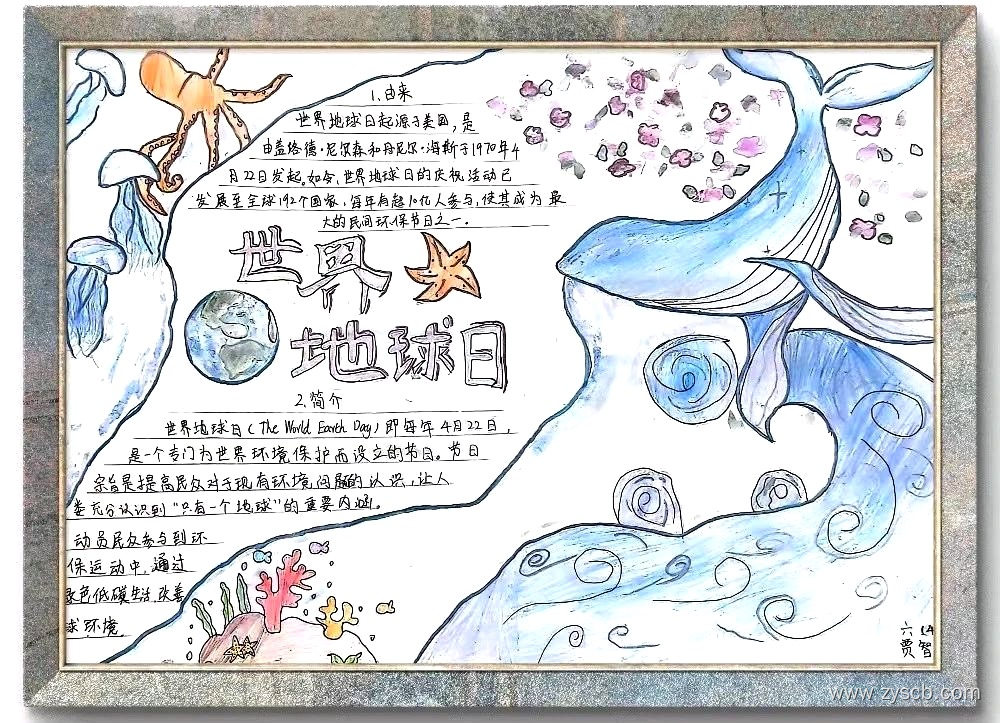 1.由来
世界地球日起源于美国,是
由盖洛德·尼尔森和丹尼尔·海斯于1970年4
月22日发起。如今,世界地球日的庆祝活动已
发展至全球192个国家,每年有超10亿人参与,使其成为最
大的民间环保节日之一。
世界
地球日
2.简介
世界地球日(The World Earth Day)即每年4月22日,
是一个专门为世界环境保护而设立的节日。节日
宗旨是提高民众对于现有环境问题的认识,让人
类充分认识到“只有一个地球”的重要内涵。
动员民众参与到环
保运动中,通过
色低碳生活,改善
球环境
六
贾智
www.zyscb.com